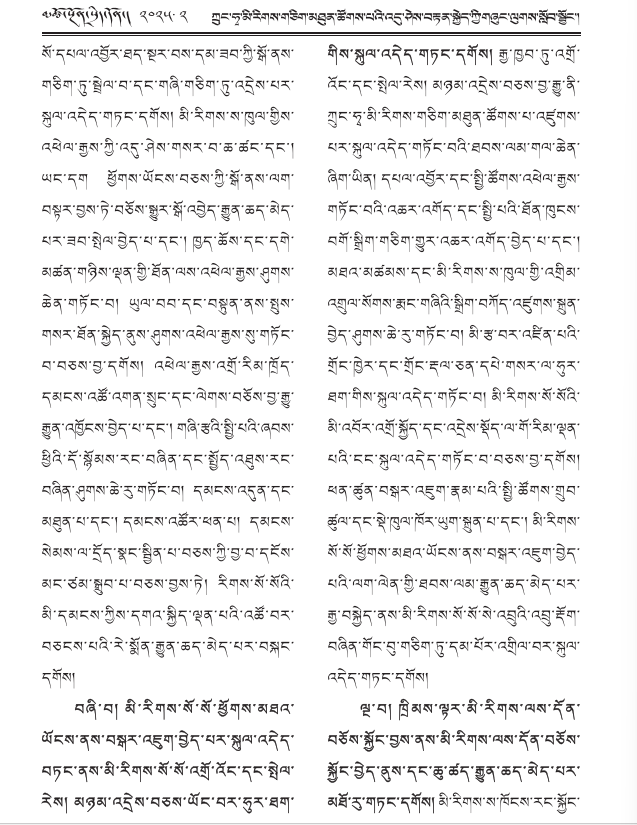 ༢༠༢༥.༢ ཀྲུང་ཧྭ་མི་རིགས་གཅིག་མཐུན་ཚོགས་པའི་འདུ་ཤེས་བརྟན་སྐྱེད་ཀྱི་གཞུང་ལུགས་སློབ་སྦྱོང་།
སོ་དཔལ་འབྱོར་ཐད་སྔར་བས་དམ་ཟབ་ཀྱི་སྒོ་ནས་
གཅིག་ཏུ་སྦྲེལ་བ་དང་གཞི་གཅིག་ཏུ་འདྲེས་པར་
སྐུལ་འདེད་གཏང་དགོས། མི་རིགས་ས་ཁུལ་གྱིས་
འཕེལ་རྒྱས་ཀྱི་འདུ་ཤེས་གསར་བ་ཆ་ཚང་དང་།
ཡང་དག ཕྱོགས་ཡོངས་བཅས་ཀྱི་སྒོ་ནས་ལག་
བསྟར་བྱས་ཏེ་བཅོས་སྒྱུར་སྒོ་འབྱེད་རྒྱུན་ཆད་མེད་
པར་ཟབ་སྤེལ་བྱེད་པ་དང་། ཁྱད་ཆོས་དང་དགེ་
མཚན་གཉིས་ལྡན་གྱི་ཐོན་ལས་འཕེལ་རྒྱས་ཤུགས་
ཆེན་གཏོང་བ། ཡུལ་བབ་དང་བསྟུན་ནས་སྤུས་
གསར་ཐོན་སྐྱེད་ནུས་ཤུགས་འཕེལ་རྒྱས་སུ་གཏོང་
བ་བཅས་བྱ་དགོས། འཕེལ་རྒྱས་འགྲོ་རིམ་ཁྲོད་
དམངས་འཚོ་འགན་སྲུང་དང་ལེགས་བཅོས་བྱ་རྒྱུ་
རྒྱུན་འཁྱོངས་བྱེད་པ་དང་། གཞི་རྩའི་སྤྱི་པའི་ཞབས་
ཕྱིའི་དོ་སྙོམས་རང་བཞིན་དང་སྤྱོད་འཐུས་རང་
བཞིན་ཤུགས་ཆེ་རུ་གཏོང་བ། དམངས་འདུན་དང་
མཐུན་པ་དང་། དམངས་འཚོར་ཕན་པ། དམངས་
སེམས་ལ་དྲོད་སྣང་སྦྱིན་པ་བཅས་ཀྱི་བྱ་བ་དངོས་
མང་ཙམ་སྒྲུབ་པ་བཅས་བྱས་ཏེ། རིགས་སོ་སོའི་
མི་དམངས་ཀྱིས་དགའ་སྐྱིད་ལྡན་པའི་འཚོ་བར་
བཅངས་པའི་རེ་སྨོན་རྒྱུན་ཆད་མེད་པར་བསྐང་
དགོས།
བཞི་བ། མི་རིགས་སོ་སོ་ཕྱོགས་མཐའ་
ཡོངས་ནས་བསྒར་འཇུག་བྱེད་པར་སྐུལ་འདེད་
བཏང་ནས་མི་རིགས་སོ་སོ་འགྲོ་འོང་དང་སྤེལ་
རེས། མཉམ་འདྲེས་བཅས་ཡོང་བར་ཧུར་ཐག་
གིས་སྐུལ་འདེད་གཏང་དགོས། རྒྱ་ཁྱབ་ཏུ་འགྲོ་
འོང་དང་སྤེལ་རེས། མཉམ་འདྲེས་བཅས་བྱ་རྒྱུ་ནི་
ཀྲུང་ཧྭ་མི་རིགས་གཅིག་མཐུན་ཚོགས་པ་འཛུགས་
པར་སྐུལ་འདེད་གཏོང་བའི་ཐབས་ལམ་གལ་ཆེན་
ཞིག་ཡིན། དཔལ་འབྱོར་དང་སྤྱི་ཚོགས་འཕེལ་རྒྱས་
གཏོང་བའི་འཆར་འགོད་དང་སྤྱི་པའི་ཐོན་ཁུངས་
བགོ་སྒྲིག་གཅིག་གྱུར་འཆར་འགོད་བྱེད་པ་དང་།
མཐའ་མཚམས་དང་མི་རིགས་ས་ཁུལ་གྱི་འགྲིམ་
འགྲུལ་སོགས་རྨང་གཞིའི་སྒྲིག་བཀོད་འཛུགས་སྐྲུན་
བྱེད་ཤུགས་ཆེ་རུ་གཏོང་བ། མི་རྩ་བར་འཛིན་པའི་
གྲོང་ཁྱེར་དང་གྲོང་རྡལ་ཅན་དཔེ་གསར་ལ་ཧུར་
ཐག་གིས་སྐུལ་འདེད་གཏོང་བ། མི་རིགས་སོ་སོའི་
མི་འབོར་འགྲོ་སྐྱོད་དང་འདྲེས་སྡོད་ལ་གོ་རིམ་ལྡན་
པའི་ངང་སྐུལ་འདེད་གཏོང་བ་བཅས་བྱ་དགོས།
ཕན་ཚུན་བསྒར་འཇུག་རྣམ་པའི་སྤྱི་ཚོགས་གྲུབ་
ཚུལ་དང་སྡེ་ཁུལ་ཁོར་ཡུག་སྐྲུན་པ་དང་། མི་རིགས་
སོ་སོ་ཕྱོགས་མཐའ་ཡོངས་ནས་བསྒར་འཇུག་བྱེད་
པའི་ལག་ལེན་གྱི་ཐབས་ལམ་རྒྱུན་ཆད་མེད་པར་
རྒྱ་བསྐྱེད་ནས་མི་རིགས་སོ་སོ་སེ་འབྲུའི་འབྲུ་རྡོག་
བཞིན་གོང་བུ་གཅིག་ཏུ་དམ་པོར་འགྲིལ་བར་སྐུལ་
འདེད་གཏང་དགོས།
ལྔ་བ། ཁྲིམས་ལྟར་མི་རིགས་ལས་དོན་
བཅོས་སྐྱོང་བྱས་ནས་མི་རིགས་ལས་དོན་བཅོས་
སྐྱོང་བྱེད་ནུས་དང་ཆུ་ཚད་རྒྱུན་ཆད་མེད་པར་
མཐོ་རུ་གཏང་དགོས། མི་རིགས་ས་ཁོངས་རང་སྐྱོང་